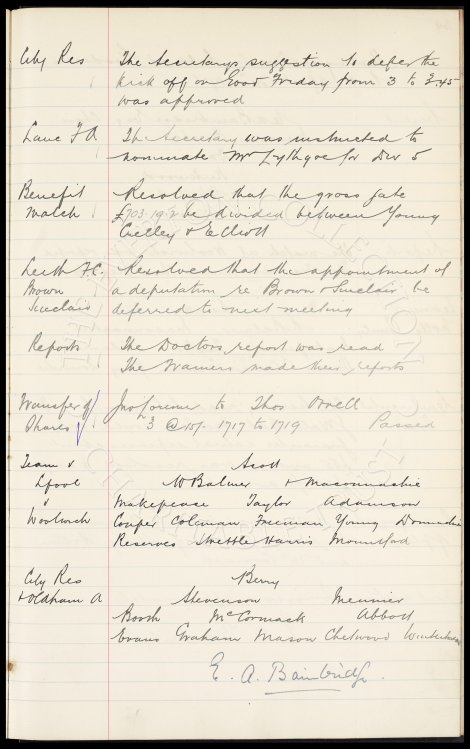 City Res The Secretarys suggestion to defer the
kick off on Good Friday from 3 to 3.45
was approved
Lanc F A The Secretary was instructed to
nominate Mr Lythgoe for Div 5
Benefit Resolved that the gross gate
Match £703.19.2 be divided between Young
Crelley & Elliott
Leith F.C. Resolved that the appointment of
Brown a deputation re Brown & Sinclair be
Sinclair deferred to next meeting
Reports The Doctors report was read
The Trainers made their reports
Transfer of Jno Lorimer to Thos
Shares 3 @ 15/- 1717 to 1719 Passed
Team v Scott
Lpool W Balmer & Maconnachie
v Makepeace Taylor Adamson
Woolwich Couper Coleman Freeman Young Donnachie
Reserves Strettle Harris Mountford
City Res Berry
v Oldham A Stevenson Meunier
Booth McCormack Abbott
Evans Graham Mason Chetwood Winterhurst
E. A. Bainbridge.